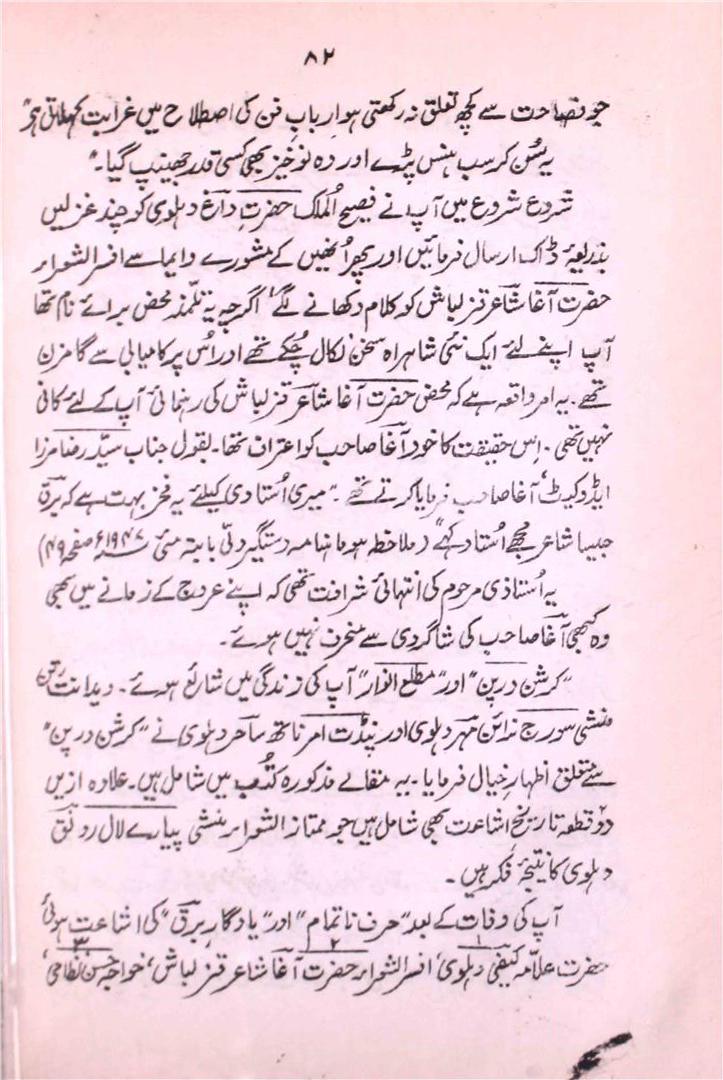 ۸۲
جو فصاحت سے کچھ تعلق نہ رکھتی ہو ارباب فن کی اصطلاح میں غرابت کہلاتی ہو"
یہ سُن کر سب ہنس پڑے اور وہ نوخیز بھی کسی قدر جھینپ گیا۔"
شروع شروع میں آپ نے فیصح اُلملک حضرتِ داغ دہلوی کو چند غزلیں
بذریعۂ ڈاک ارسال فرمائیں اور پھر اُنھیں کے مشورے و ایما سے افسر الشعراء
حضرت آغا شاعر قزلباش کو کلام دکھانے لگے' اگرچہ یہ تلمّذ محض برائے نام تھا
آپ اپنے لئے ایک نئی شاہراہ سخن نکال چُکے تھے اور اُس پر کامیابی سے گامزن
تھے۔ یہ امر واقعہ ہے کہ محض حضرت آغا شاعر قزلباش کی رہنمائی آپ کے لئے کافی
نہیں تھی۔ اِس حقیقت کا خود آغا صاحب کو اعتراف تھا۔ بقول جناب سیّد رضا مرزا
ایڈوکیٹ' آغا صاحب فرمایا کرتے تھے۔ "میری اُستادی کیلئے یہ فخر بہت ہے کہ برق
جیسا شاعر مجھے اُستاد کہے" (ملاحظہ ہو ماہنامہ دستگیر دلّی بابتہ مئی ۱۹۴۷ء صفحہ ۴۹)
یہ اُستاذی مرحوم کی انتہائی شرافت تھی کہ اپنے عروج کے زمانے میں بھی
وہ کبھی آغا صاحب کی شاگردی سے منحرف نہیں ہوئے۔
"کرشن درپن" اور "مطلع انوار" آپ کی زندگی میں شائع ہوئے۔ ویدانت رتن
منشی سورج نرائن مہر دہلوی اور پنڈت امر ناتھ ساحر دہلوی نے "کرشن درپن"
سے متعلق اظہارِ خیال فرمایا۔ یہ مقالے مذکورہ کتُب میں شامل ہیں۔ علاوہ ازیں
دو قطعہ تاریخِ اشاعت بھی شامل ہیں جو ممتاز الشعراء منشی پیارے لال رونق
دہلوی کا نتیجۂ فکر ہیں۔
آپ کی وفات کے بعد "حرف ناتمام" اور "یادگار برق" کی اشاعت ہوئی
حضرت علامہ کیفی دہلوی' ۱ افسر الشعراء حضرت آغا شاعر قزلباش' ۲ خواجہ حسن نظامی' ۳